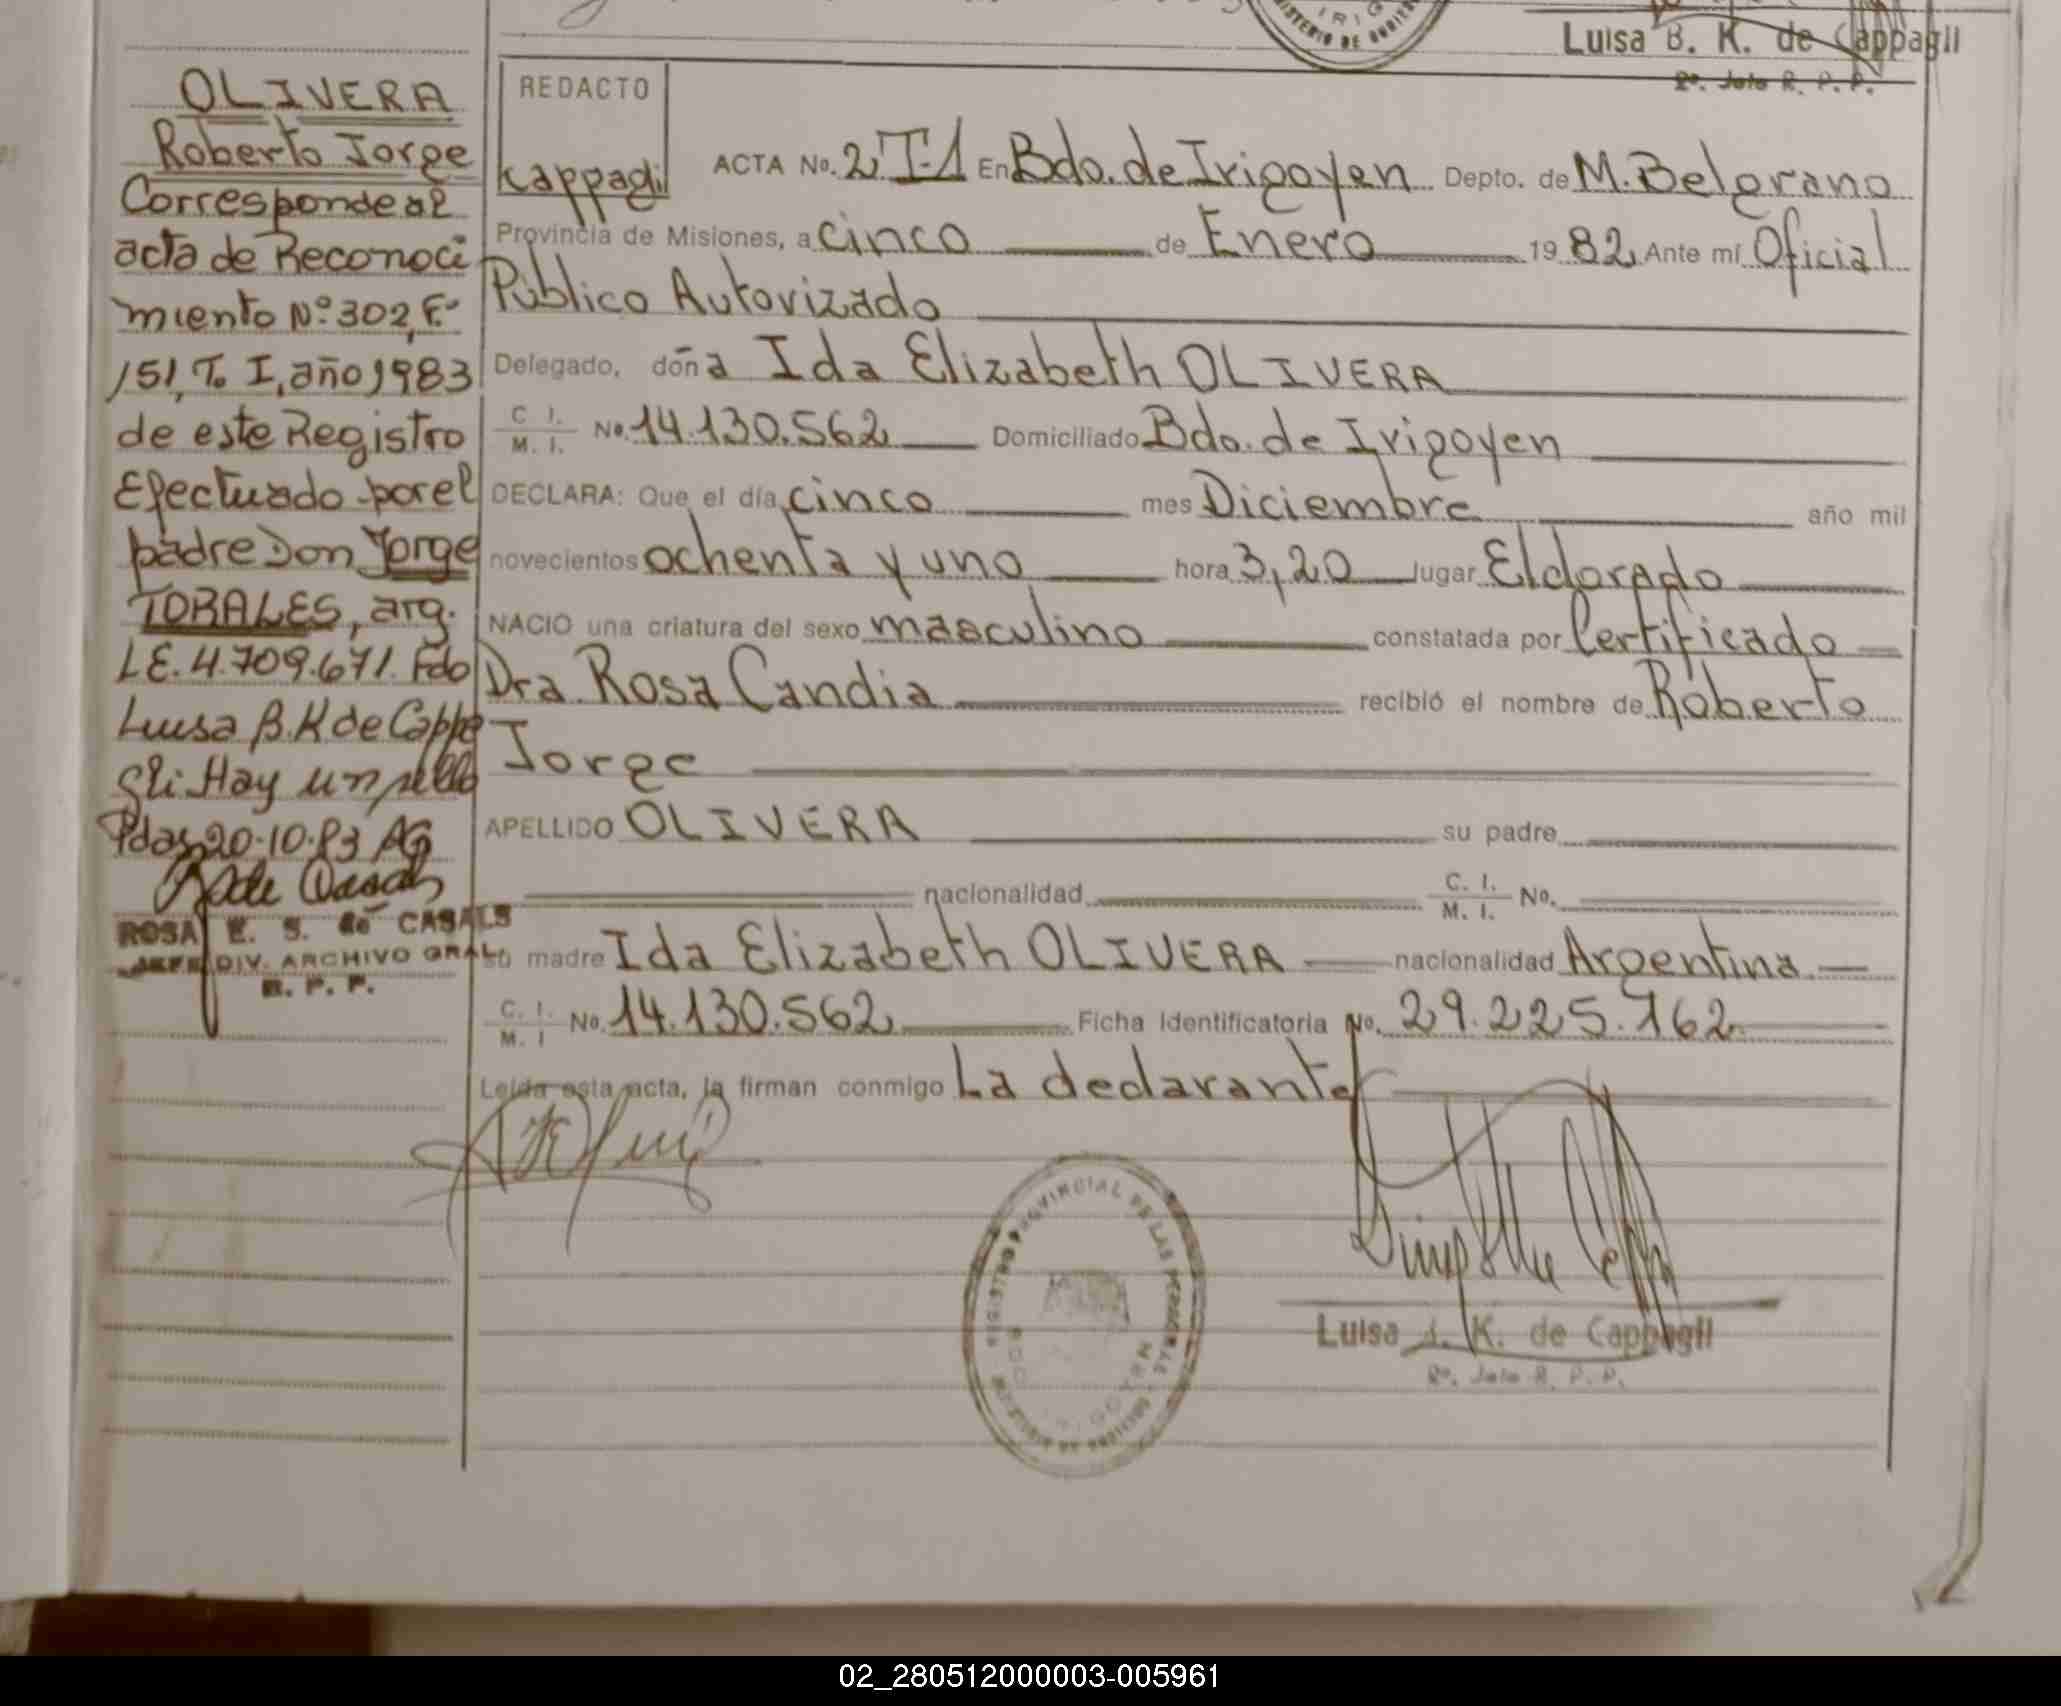 Luisa B. K. de Cappagli
R. P. P.
OLIVERA
Roberto Jorge
Corresponde al
acta de Reconoci
miento Nº 302, Fº
151, Tº I, año 1983
de este Registro
Efectuado por el
padre Don Jorge
TORALES, arg.
L.E. 4.709.671. Fdo
Luisa B.K de Cappa
gli. Hay un sello
Pdas, 20-10-83 AG
ROSA E. S. de CASALS
JEFE DIV. ARCHIVO GRAL
R. P. P.
REDACTO
Cappagli
ACTA No. 2 T-1 En Bdo. de Irigoyen Depto. de M. Belgrano
Provincia de Misiones, a cinco de Enero 1982 Ante mí Oficial
Público Autorizado
Delegado, doña Ida Elizabeth OLIVERA
C. I. / M. I. No. 14.130.562 Domiciliado Bdo. de Irigoyen
DECLARA: Que el día cinco mes Diciembre año mil
novecientos ochenta y uno hora 3,20 lugar Eldorado
NACIO una criatura del sexo masculino constatada por Certificado
Dra Rosa Candia recibió el nombre de Roberto
Jorge
APELLIDO OLIVERA su padre
nacionalidad C. I. / M. I. No.
su madre Ida Elizabeth OLIVERA nacionalidad Argentina
C. I. / M. I No. 14.130.562 Ficha Identificatoria No. 29.225.762
Leída esta acta, la firman conmigo La declarante
REGISTRO PROVINCIAL DE LAS PERSONAS
Luisa K. de Cappagli
R. P. P.
02_280512000003-005961